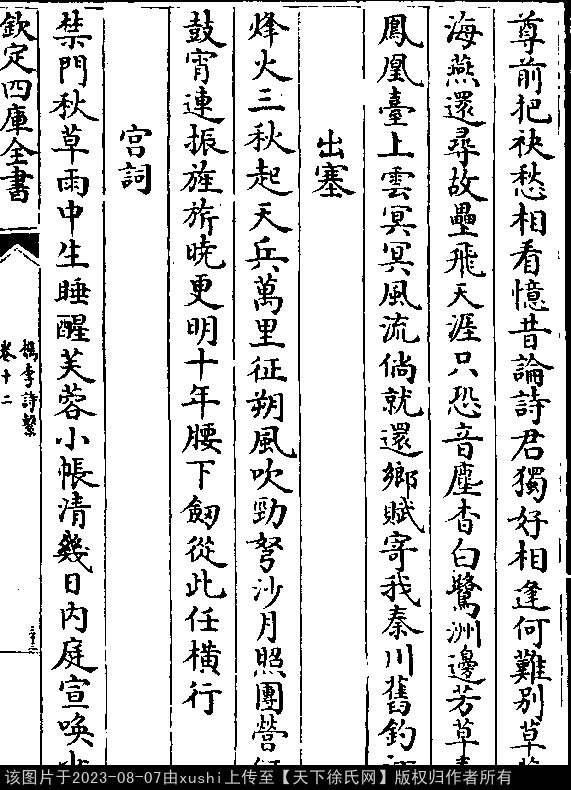 尊前把袂愁相看憶昔論詩君獨好相逢何難別草
海燕還尋故壘飛天涯只恐音塵杳白鷺洲邊芳草
鳳凰臺上雲冥冥風流倘就還鄉賦寄我秦川舊釣
出塞
烽火三秋起天兵萬里征朔風吹勁弩沙月照團營
鼓宵連振旌旂曉更明十年腰下劒從此任橫行
宫詞
禁門秋草雨中生睡醒芙蓉小帳清幾日内庭宣喚
欽定四庫全書
檇李詩繫
卷十二
该图片于2023-08-07由xushi上传至【天下徐氏网】版权归作者所有